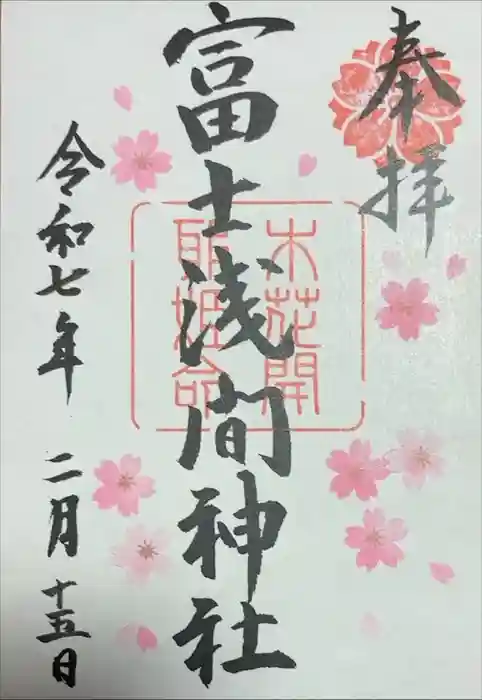 奉拝
富士浅間神社
木花開
耶姫命
令和七年 二月 十五日